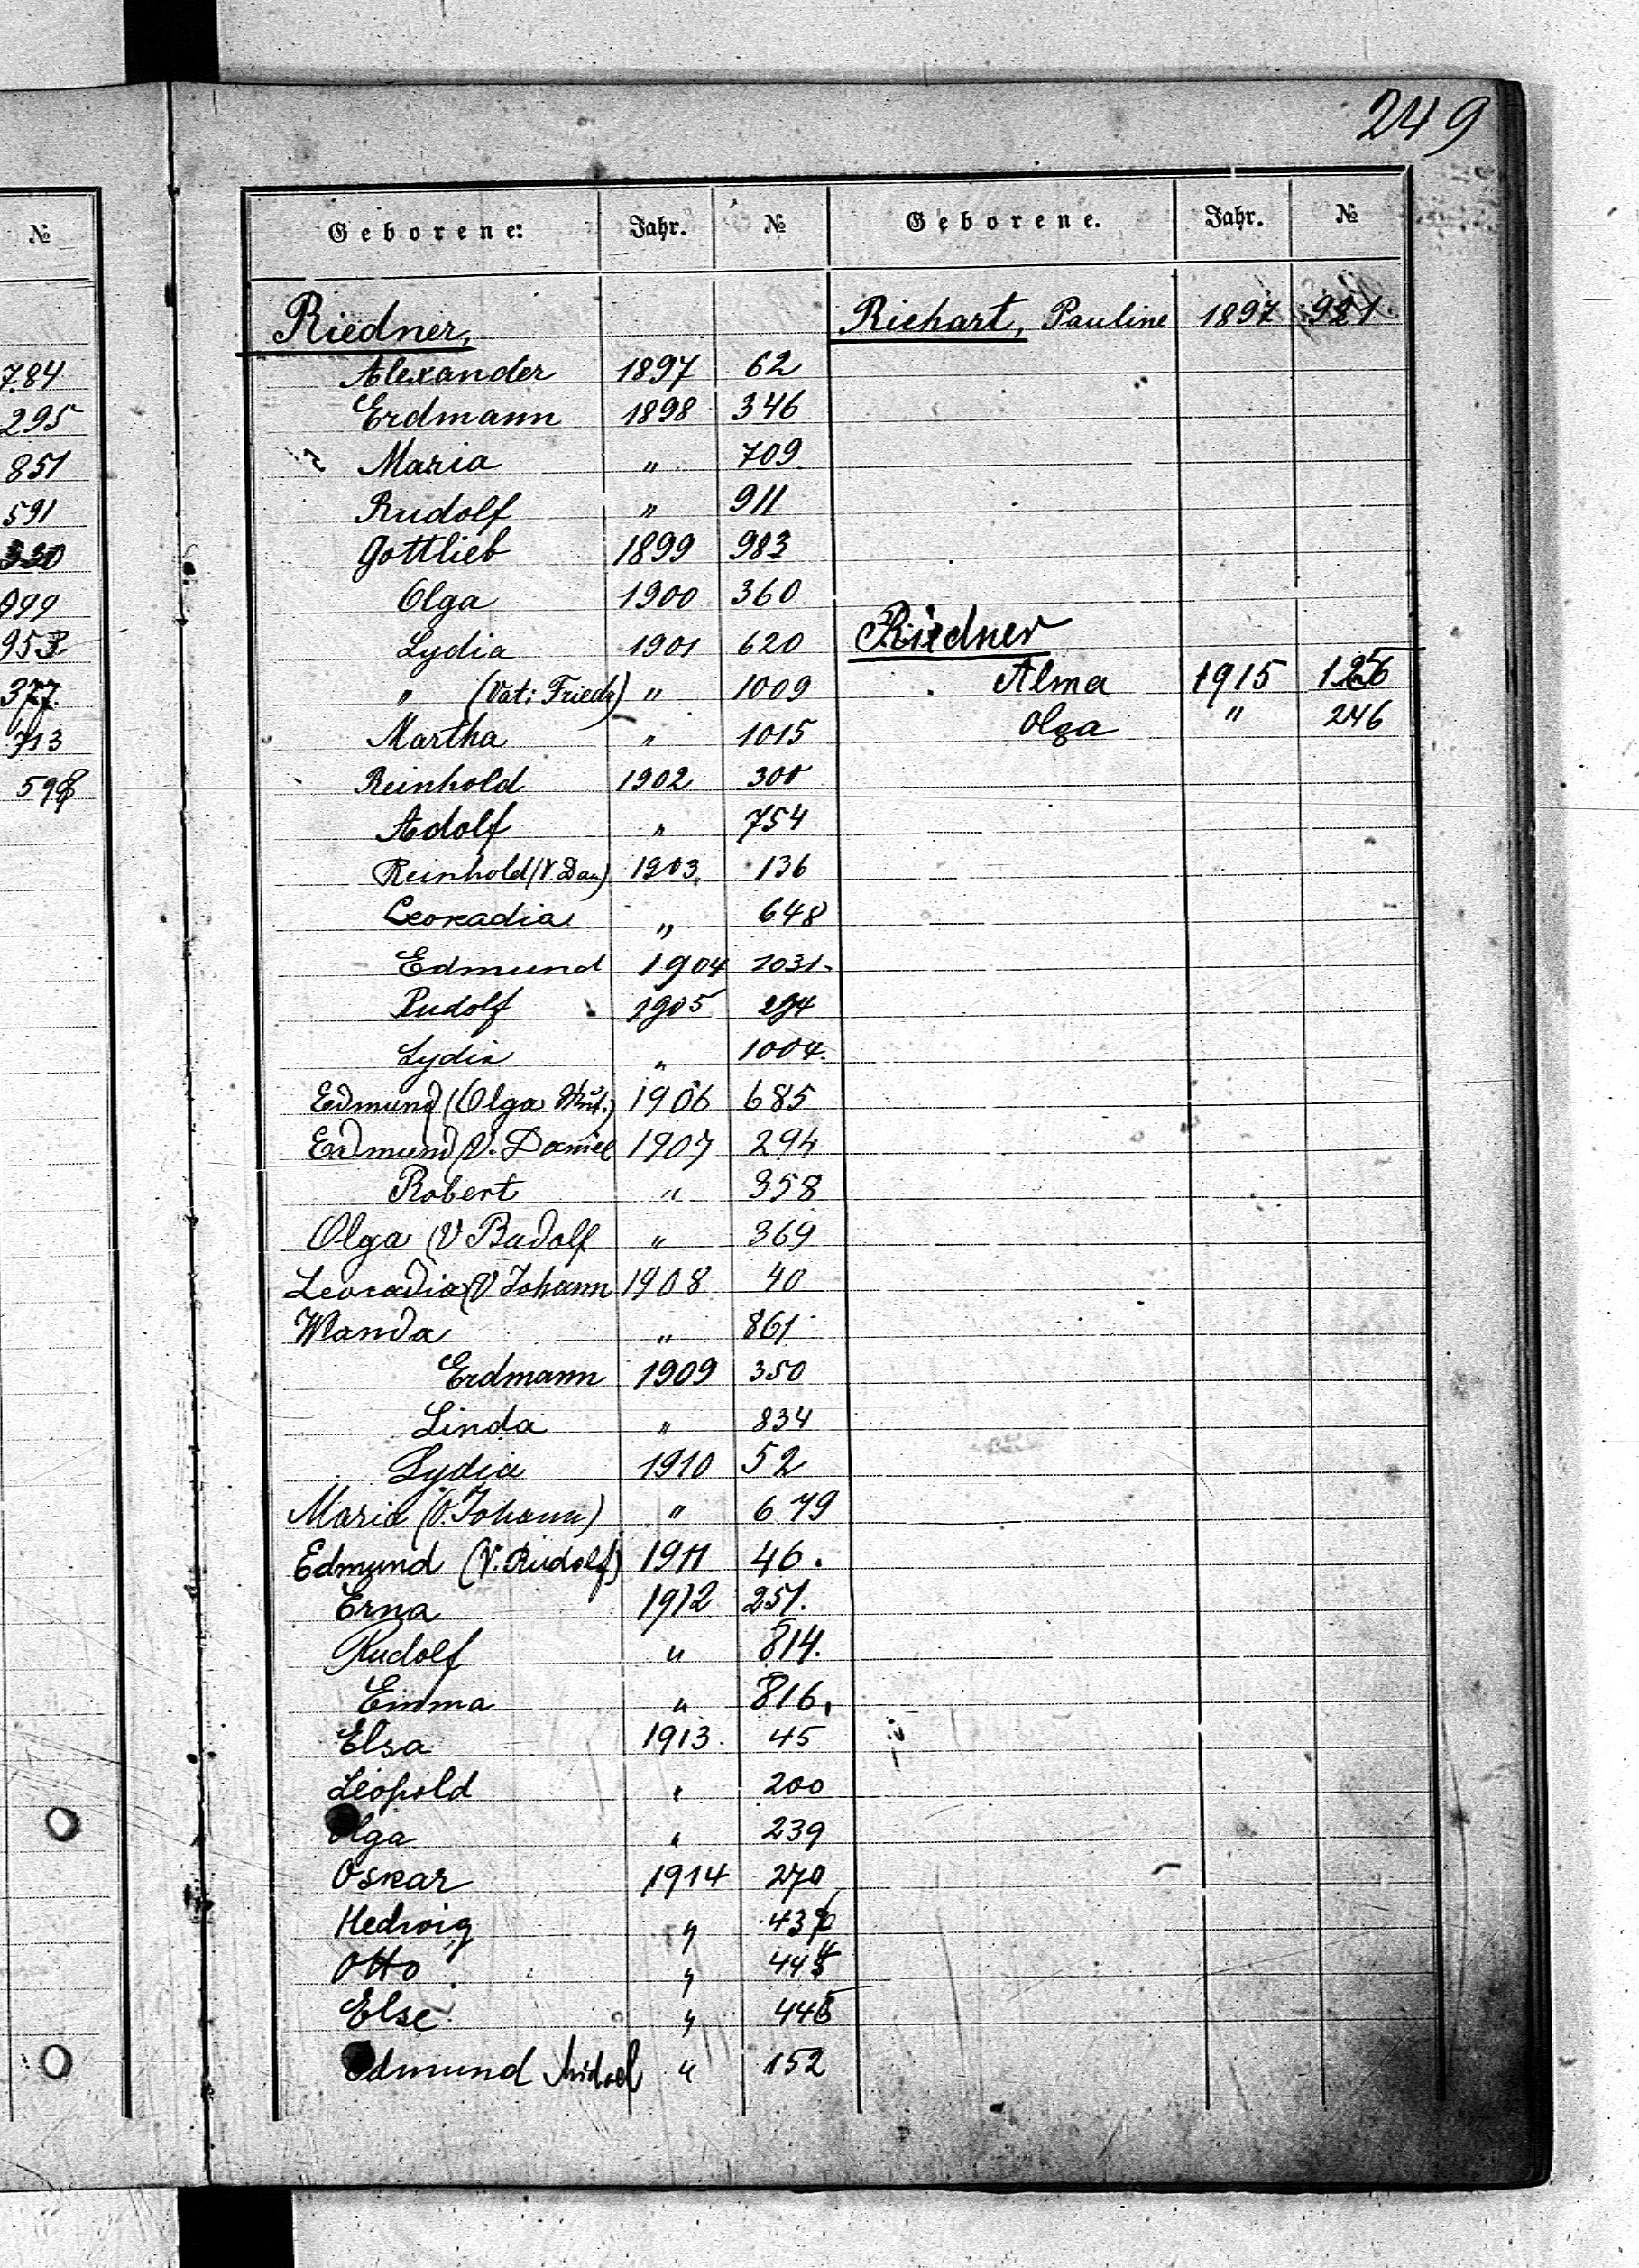 249
№
784
295
851
591
330
999
377.
713
Geborene: Jahr. № Geborene. Jahr. №
Riedner,
Alexander 1897 62
Erdmann 1898 346
Maria " 709
Rudolf " 911
Gottlieb 1899 983
Olga 1900 360
Lydia 1901 620
" (Vat: Friedr) " 1009
Martha " 1015
Reinhold 1902 300
Adolf " 754
Reinhold (V. Dan) 1903 136
Leokadia " 648
Edmund 1904 1031.
Rudolf 1905
Lydia " 1004.
Edmund (Olga Mut.) 1906 685
Edmund (V. Daniel 1907 294
Robert " 358
Olga (V Rudolf " 369
Leocadia (V Johann 1908 40
Wanda " 861
Erdmann 1909 350
Linda " 834
Lydia 1910 52
Maria (V. Johann) " 679
Edmund (V. Rudolf) 1911 46.
Erna 1912 251.
Rudolf " 814.
Emma " 816.
Elsa 1913. 45
Leopold " 200
Olga " 239
Oskar 1914 270
Hedwig "
Otto " 444
Else " 445
Edmund Michael " 152
Richart, Pauline 1897 921.
Riedner
Alma 1915 125
Olga " 246